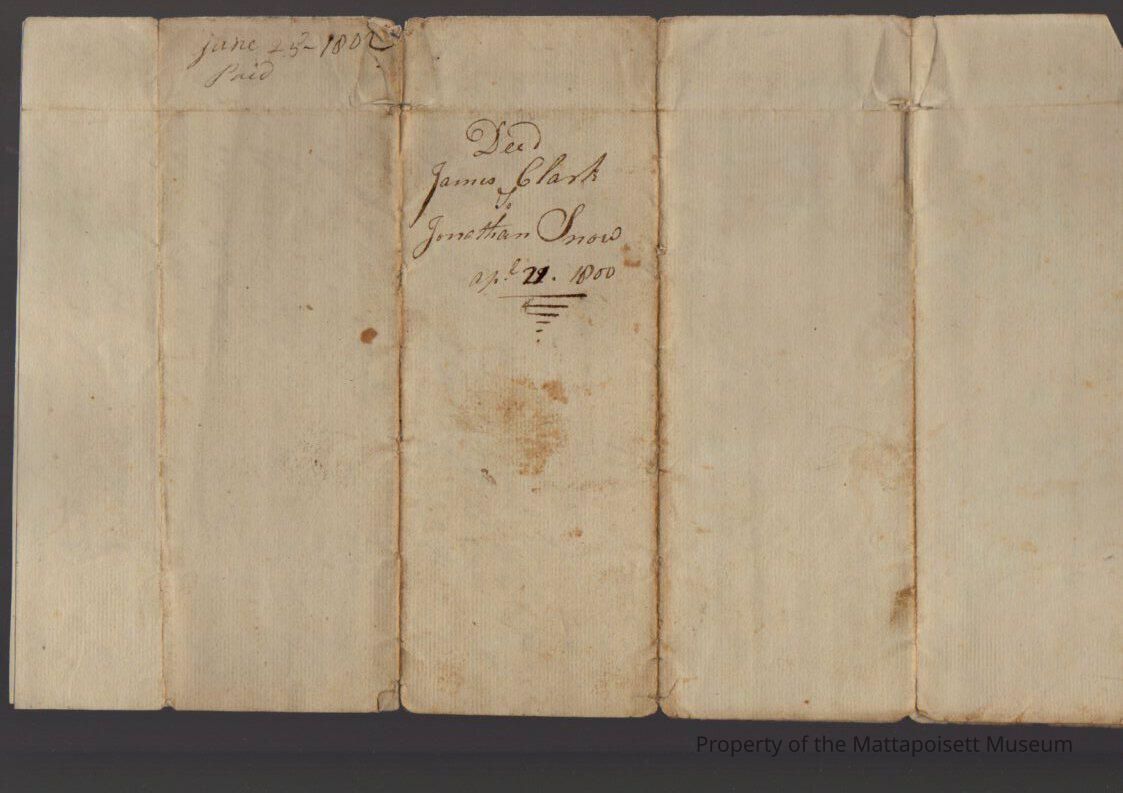 June 25 - 1802
Paid
Deed
James Clark
to
Jonathan Snow
apl 21. 1800
Property of the Mattapoisett Museum